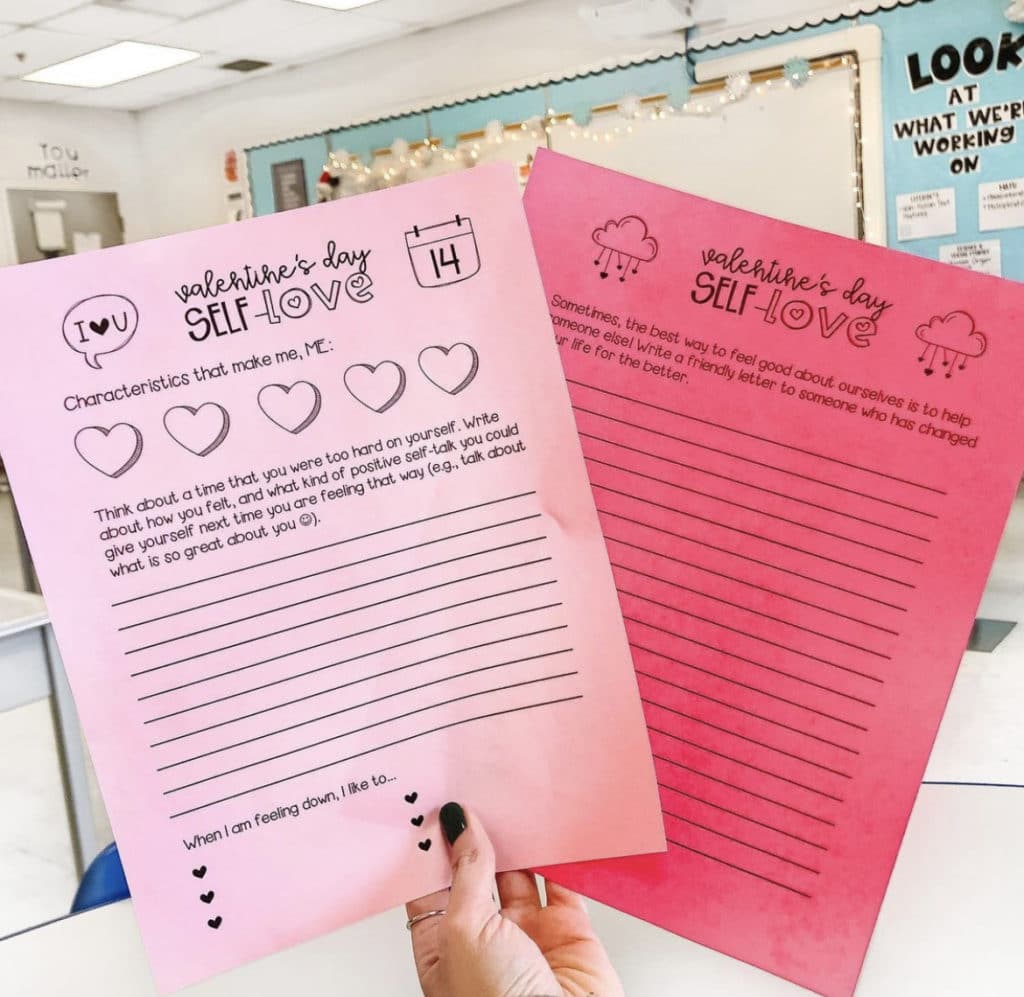 You
matter
LOOK
AT
WHAT WE'RE
WORKING
ON
I ♥ U
valentine's day
SELF-LOVE
14
Characteristics that make me, ME:
Think about a time that you were too hard on yourself. Write
about how you felt, and what kind of positive self-talk you could
give yourself next time you are feeling that way (e.g., talk about
what is so great about you ☺).
When I am feeling down, I like to...
valentine's day
SELF-LOVE
Sometimes, the best way to feel good about ourselves is to help
someone else! Write a friendly letter to someone who has changed
life for the better.